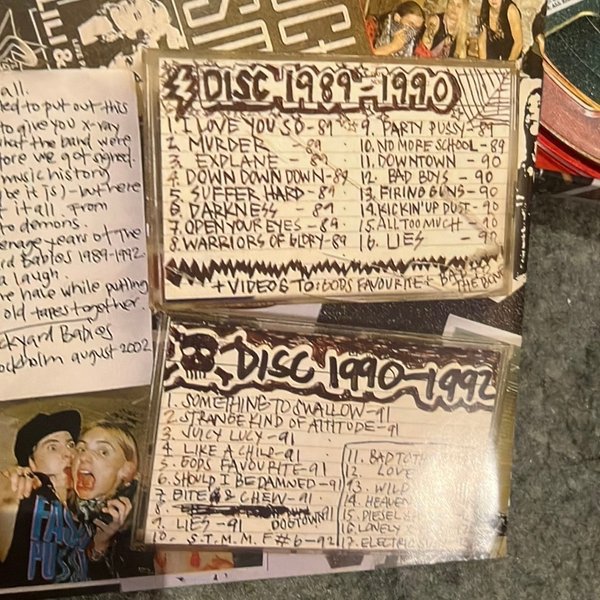 all.
ted to put out this
to give you x-ray
what the band were
fore we got signed.
music history
be it is) - Where
it all. From
to demons.
enage years of the
ard Babies 1989-1992
a laugh.
we have while putting
old tapes together.
ckyard Babies
ockholm august 2002
DISC 1989-1990
1. I LOVE YOU SO - 89
2. MURDER - 89
3. EXPLANE - 89
4. DOWN DOWN DOWN - 89
5. SUFFER HARD - 89
6. DARKNESS - 89
7. OPEN YOUR EYES - 89
8. WARRIORS OF GLORY - 89
9. PARTY PUSSY - 89
10. NO MORE SCHOOL - 89
11. DOWNTOWN - 90
12. BAD BOYS - 90
13. FIRING GUNS - 90
14. KICKIN' UP DUST - 90
15. ALL TOO MUCH - 90
16. LIES - 90
+ VIDEOS TO: GODS FAVOURITE + BAD TO
THE BONE
DISC 1990-1992
1. SOMETHING TO SWALLOW - 91
2. STRANGE KIND OF ATTITUDE - 91
3. JUICY LUCY - 91
4. LIKE A CHILD - 91
5. GODS FAVOURITE - 91
6. SHOULD I BE DAMNED - 91
7. BITE & CHEW - 91
8. DOGTOWN 91
9. LIES - 91
10. S.T.M.M.F #6 - 92
11. BAD TO TH
12. LOVE
13. WILD
14. HEAVEN
15. DIESEL &
16. LONELY
17. ELECTRIC
PUSS